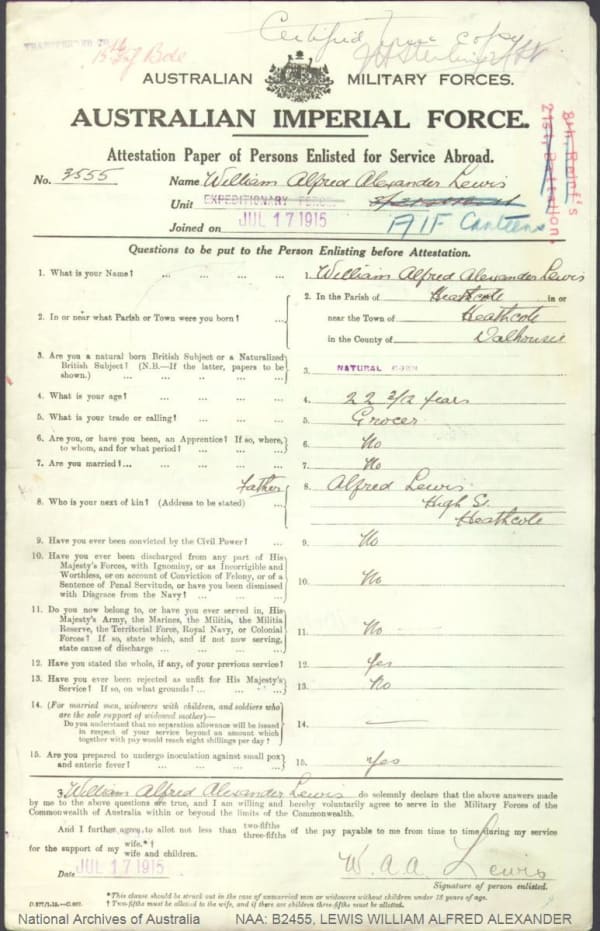 Certified True Copy
TRANSFERRED TO
AUSTRALIAN MILITARY FORCES.
AUSTRALIAN IMPERIAL FORCE.
Attestation Paper of Persons Enlisted for Service Abroad.
8th Reinf's
21st Battalion.
No. 3555 Name William Alfred Alexander Lewis
Unit EXPEDITIONARY FORCE AIF Canteens
Joined on JUL 17 1915
Questions to be put to the Person Enlisting before Attestation.
1. What is your Name? ... ... ... ... 1. William Alfred Alexander Lewis
2. In or near what Parish or Town were you born? ... 2. In the Parish of Heathcote in or
near the Town of Heathcote
in the County of Dalhousie
3. Are you a natural born British Subject or a Naturalized
British Subject? (N.B.—If the latter, papers to be
shown.) ... ... ... ... ... 3. NATURAL BORN
4. What is your age? ... ... ... ... 4. 22 3/12 years
5. What is your trade or calling? ... ... ... 5. Grocer
6. Are you, or have you been, an Apprentice? If so, where,
to whom, and for what period? ... ... ... 6. No
7. Are you married?... ... ... ... ... 7. No
Father
8. Who is your next of kin? (Address to be stated) ... 8. Alfred Lewis
High St.
Heathcote
9. Have you ever been convicted by the Civil Power? ... 9. No
10. Have you ever been discharged from any part of His
Majesty's Forces, with Ignominy, or as Incorrigible and
Worthless, or on account of Conviction of Felony, or of a
Sentence of Penal Servitude, or have you been dismissed
with Disgrace from the Navy? ... ... ... 10. No
11. Do you now belong to, or have you ever served in, His
Majesty's Army, the Marines, the Militia, the Militia
Reserve, the Territorial Force, Royal Navy, or Colonial
Forces? If so, state which, and if not now serving,
state cause of discharge ... ... ... ... 11. No
12. Have you stated the whole, if any, of your previous service? 12. Yes
13. Have you ever been rejected as unfit for His Majesty's
Service? If so, on what grounds? ... ... ... 13. No
14. (For married men, widowers with children, and soldiers who
are the sole support of widowed mother)—
Do you understand that no separation allowance will be issued
in respect of your service beyond an amount which
together with pay would reach eight shillings per day? ... 14. —
15. Are you prepared to undergo inoculation against small pox
and enteric fever? ... ... ... ... 15. Yes
3. William Alfred Alexander Lewis do solemnly declare that the above answers made
by me to the above questions are true, and I am willing and hereby voluntarily agree to serve in the Military Forces of the
Commonwealth of Australia within or beyond the limits of the Commonwealth.
And I further agree to allot not less than two-fifths three-fifths of the pay payable to me from time to time during my service
for the support of my wife.*† wife and children.
Date JUL 17 1915 W. A. A. Lewis
Signature of person enlisted.
*This clause should be struck out in the case of unmarried men or widowers without children under 18 years of age.
† Two-fifths must be allotted to the wife, and if there are children three-fifths must be allotted.
National Archives of Australia NAA: B2455, LEWIS WILLIAM ALFRED ALEXANDER